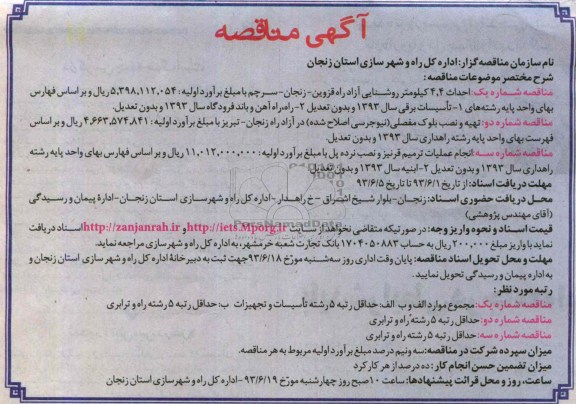 آگهی مناقصه
نام سازمان مناقصه گزار: اداره کل راه و شهر سازی استان زنجان
شرح مختصر موضوعات مناقصه:
مناقصه شماره یک: احداث ۴٫۴ کیلومتر روشنایی آزاد راه قزوین - زنجان - سرچم با مبلغ برآورد اولیه: ۵٫۳۹۸٫۱۱۲٫۰۵۴ ریال و بر اساس فهارس
بهای واحد پایه رشته های ۱- تأسیسات برقی سال ۱۳۹۳ و بدون تعدیل ۲- راه، راه آهن و باند فرودگاه سال ۱۳۹۳ و بدون تعدیل.
مناقصه شماره دو: تهیه و نصب بلوک مفصلی (نیوجرسی اصلاح شده) در آزاد راه زنجان - تبریز با مبلغ برآورد اولیه: ۴٫۶۶۳٫۵۷۴٫۸۴۱ ریال و بر اساس
فهرست بهای واحد پایه رشته راهداری سال ۱۳۹۳ و بدون تعدیل.
مناقصه شماره سه: انجام عملیات ترمیم قرنیز و نصب نرده پل با مبلغ برآورد اولیه: ۱۱٫۰۱۲٫۰۰۰٫۰۰۰ ریال و بر اساس فهارس بهای واحد پایه رشته
راهداری سال ۱۳۹۳ و بدون تعدیل ۲- ابنیه سال ۱۳۹۳ و بدون تعدیل.
مهلت دریافت اسناد: از تاریخ ۹۳/۶/۱ تا تاریخ ۹۳/۶/۵
محل دریافت حضوری اسناد: زنجان - بلوار شیخ اشراق - خ راهدار - اداره کل راه و شهرسازی استان زنجان - ادارهٔ پیمان و رسیدگی
(آقای مهندس پژوهشی)
قیمت اسناد و نحوه واریز وجه: در صورتیکه متقاضی نخواهد از سایت http://iets.Mporg.ir و http://zanjanrah.ir اسناد دریافت
نماید با واریز مبلغ ۲۰۰٫۰۰۰ ریال به حساب ۱۷۰۴۰۵۰۸۸۳ بانک تجارت شعبه خرمشهر، به اداره کل راه و شهرسازی مراجعه نماید.
مهلت و محل تحویل اسناد مناقصه: پایان وقت اداری روز سه شنبه مورخ ۹۳/۶/۱۸ جهت ثبت به دبیرخانهٔ اداره کل راه و شهرسازی استان زنجان و
به اداره پیمان و رسیدگی تحویل نمایید.
رتبه مورد نظر:
مناقصه شماره یک: مجموع موارد الف و ب الف: حداقل رتبه ۵ رشته تأسیسات و تجهیزات ب: حداقل رتبه ۵ رشته راه و ترابری
مناقصه شماره دو: حداقل رتبه ۵ رشته راه و ترابری
مناقصه شماره سه: حداقل رتبه ۵ رشته راه و ترابری
میزان سپرده شرکت در مناقصه: سه و نیم درصد مبلغ برآورد اولیه مربوط به هر مناقصه.
میزان تضمین حسن انجام کار: ده درصد از هر کارکرد
ساعت، روز و محل قرائت پیشنهادها: ساعت ۱۰ صبح روز چهارشنبه مورخ ۹۳/۶/۱۹ - اداره کل راه و شهرسازی استان زنجان